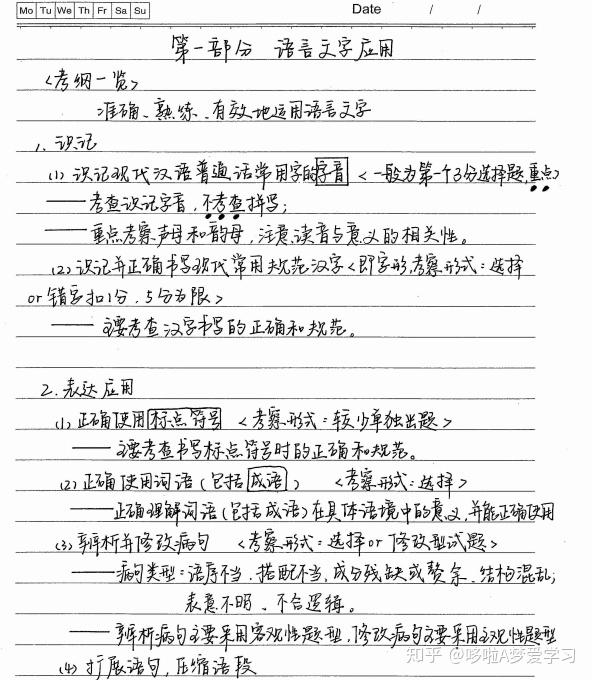 Mo Tu We Th Fr Sa Su Date / /
第一部分 语言文字应用
<考纲一览>
准确、熟练、有效地运用语言文字
1、识记
(1) 识记现代汉语普通话常用字的字音 <一般为第一个3分选择题,重点>
——考查识记字音,不考查拼写;
——重点考察声母和韵母,注意读音与意义的相关性。
(2) 识记并正确书写现代常用规范汉字<即字形,考察形式:选择
or 错字扣1分,5分为限>
—— 主要考查汉字书写的正确和规范。
2. 表达应用
(1) 正确使用标点符号 <考察形式:较少单独出题>
——主要考查书写标点符号时的正确和规范。
(2) 正确使用词语(包括成语) <考察形式:选择>
——正确理解词语(包括成语)在具体语境中的意义,并能正确使用
(3) 辨析并修改病句 <考察形式:选择or修改型试题>
——病句类型:语序不当、搭配不当,成分残缺或赘余、结构混乱;
表意不明、不合逻辑。
——辨析病句主要采用客观性题型,修改病句主要采用主观性题型
(4) 扩展语句,压缩语段
知乎 @哆啦A梦爱学习